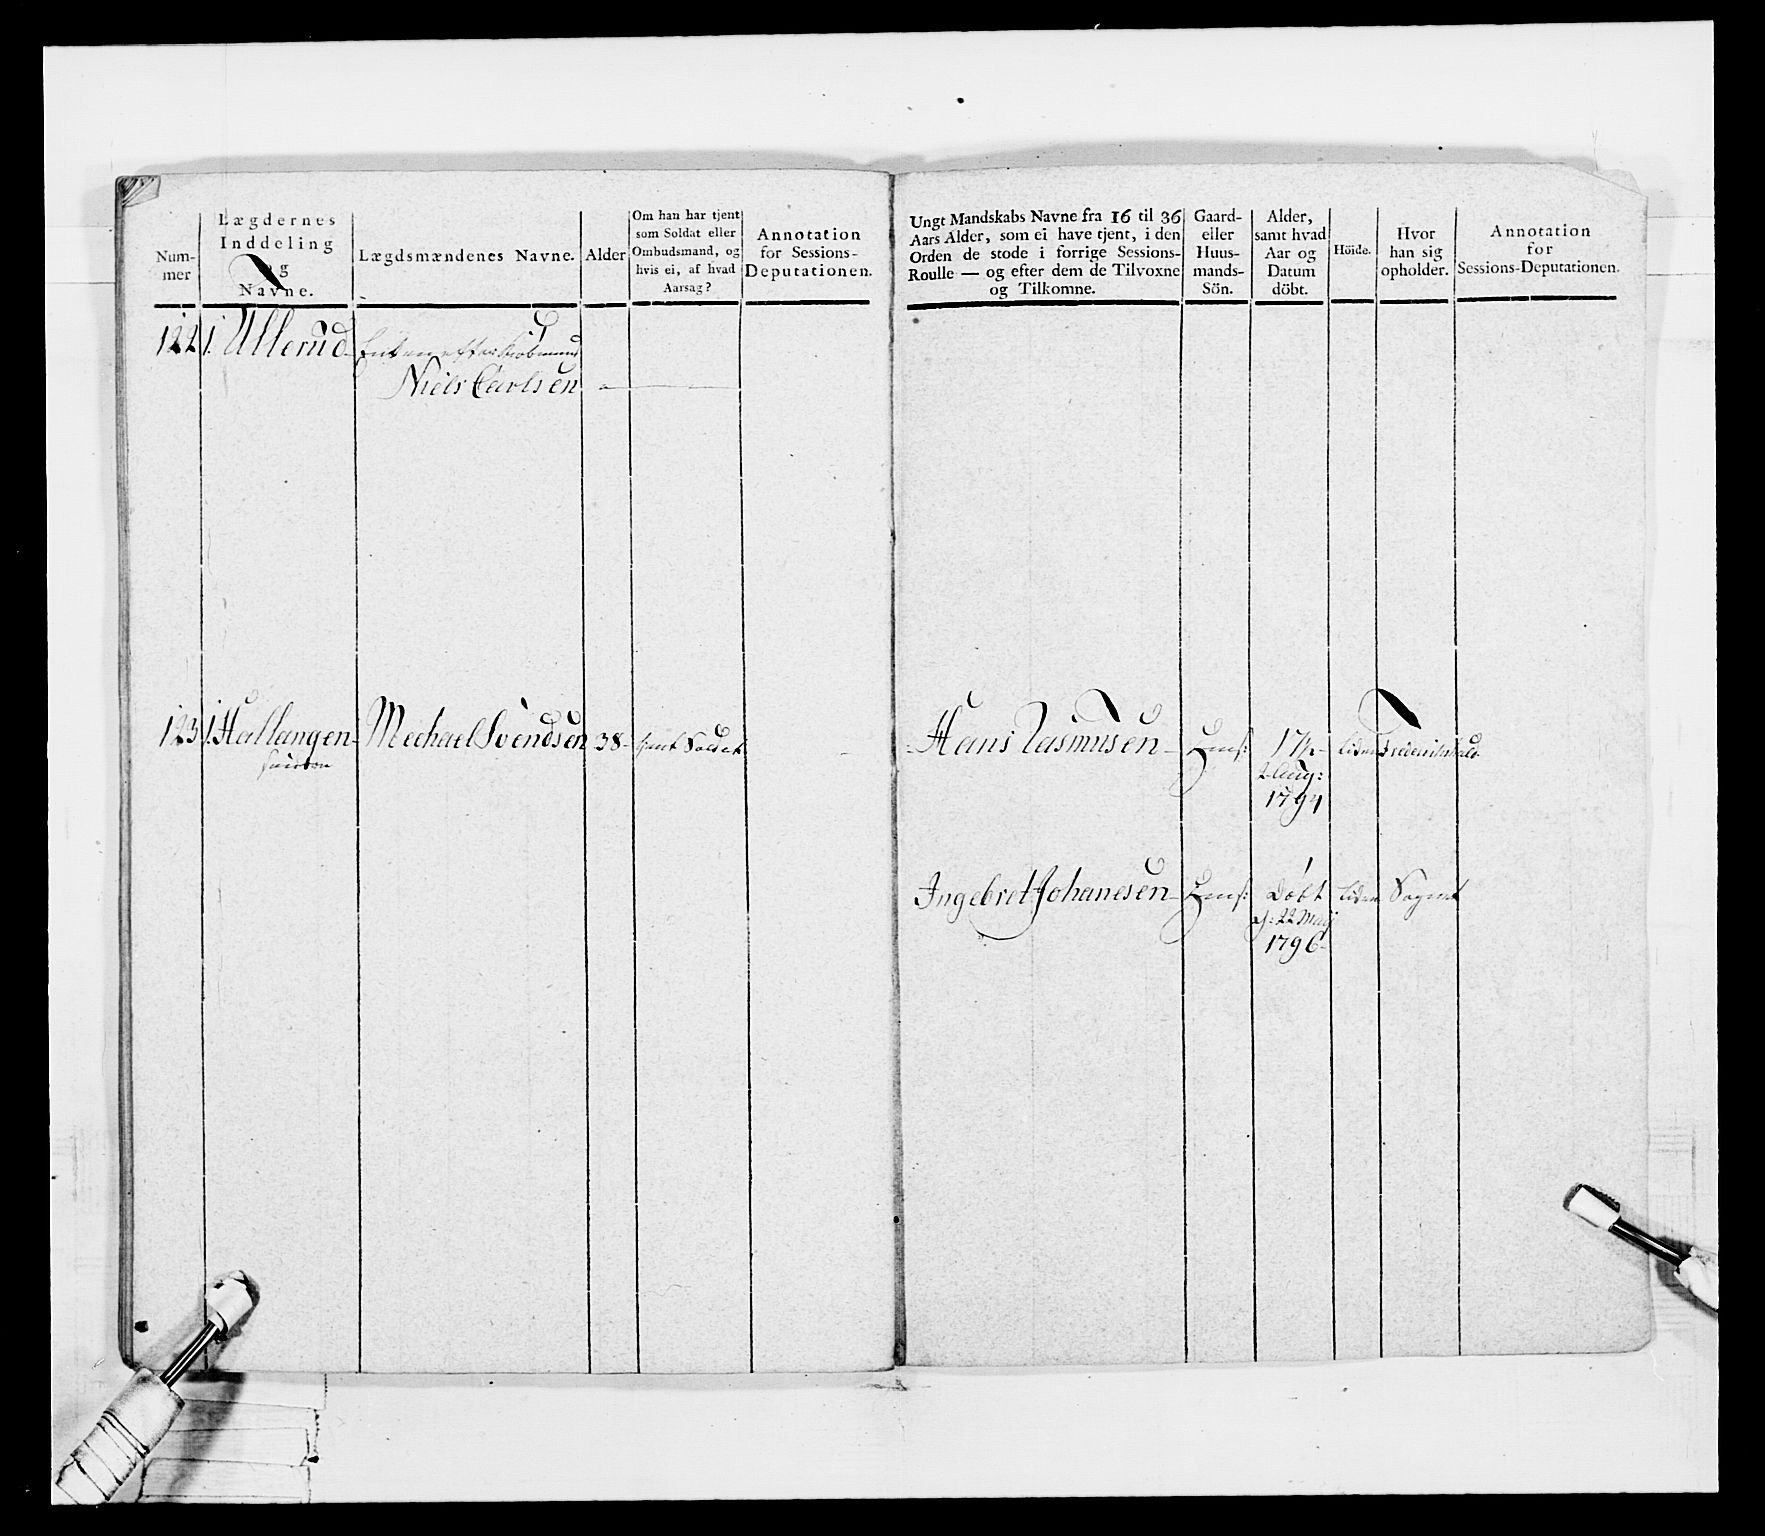 Num-
mer
Lægdernes
Inddeling
og
Navne.
Lægdsmændenes Navne.
Alder
Om han har tjent
som Soldat eller
Ombudsmand, og
hvis ei, af hvad
Aarsag?
Annotation
for Sessions-
Deputationen.
122 1. Ullerud
Niels Carlsen
123 1. Hallangen Mechael Svendsen 38 tient Soldat
Ungt Mandskabs Navne fra 16 til 36
Aars Alder, som ei have tjent, i den
Orden de stode i forrige Sessions-
Roulle — og efter dem de Tilvoxne
og Tilkomne.
Gaard-
eller
Huus-
mands-
Sön.
Alder,
samt hvad
Aar og
Datum
döbt.
Höide.
Hvor
han sig
opholder.
Annotation
for
Sessions-Deputationen.
Hans Rasmusen 17½ liden Frederichshald
2 Aug:
1794
Ingebret Johanesen Döbt liden Sognet
d: 22 Maij
1796